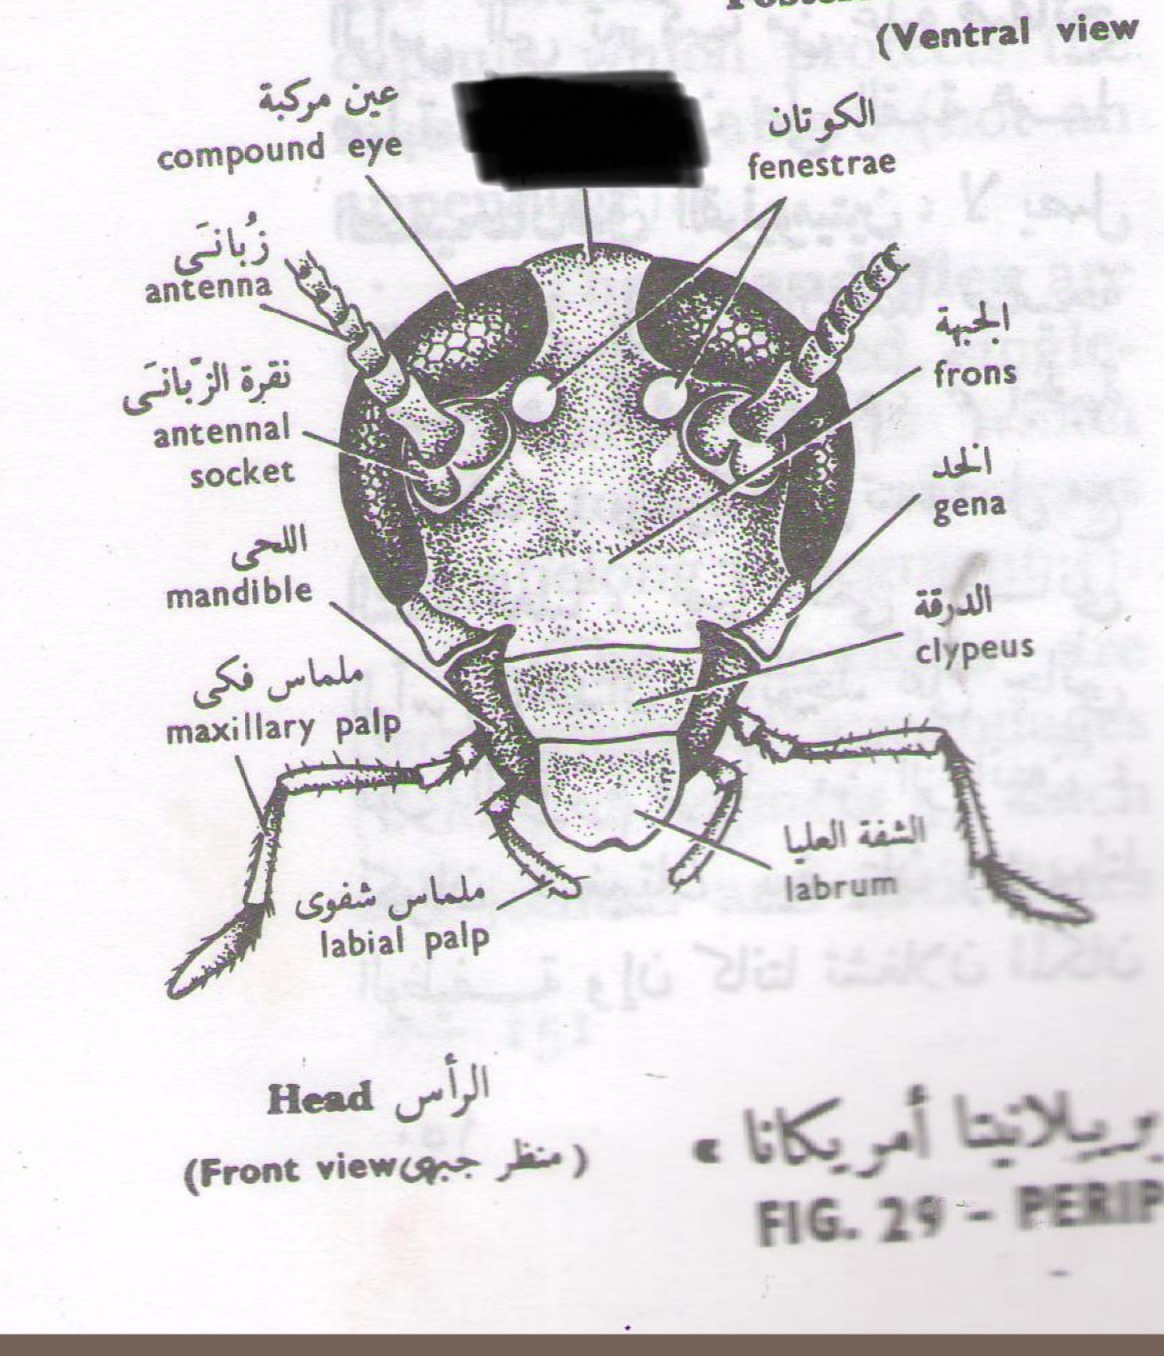 (Ventral view
عين مركبة
compound eye
الكوتان
fenestrae
زُبانَى
antenna
الجبهة
frons
نقرة الزّبانَى
antennal
socket
الخد
gena
اللحى
mandible
الدرقة
clypeus
ملماس فكى
maxillary palp
الشفة العليا
labrum
ملماس شفوى
labial palp
Head الرأس
(Front view منظر جبهى)
أمريكانا »
FIG. 29 - PERIP